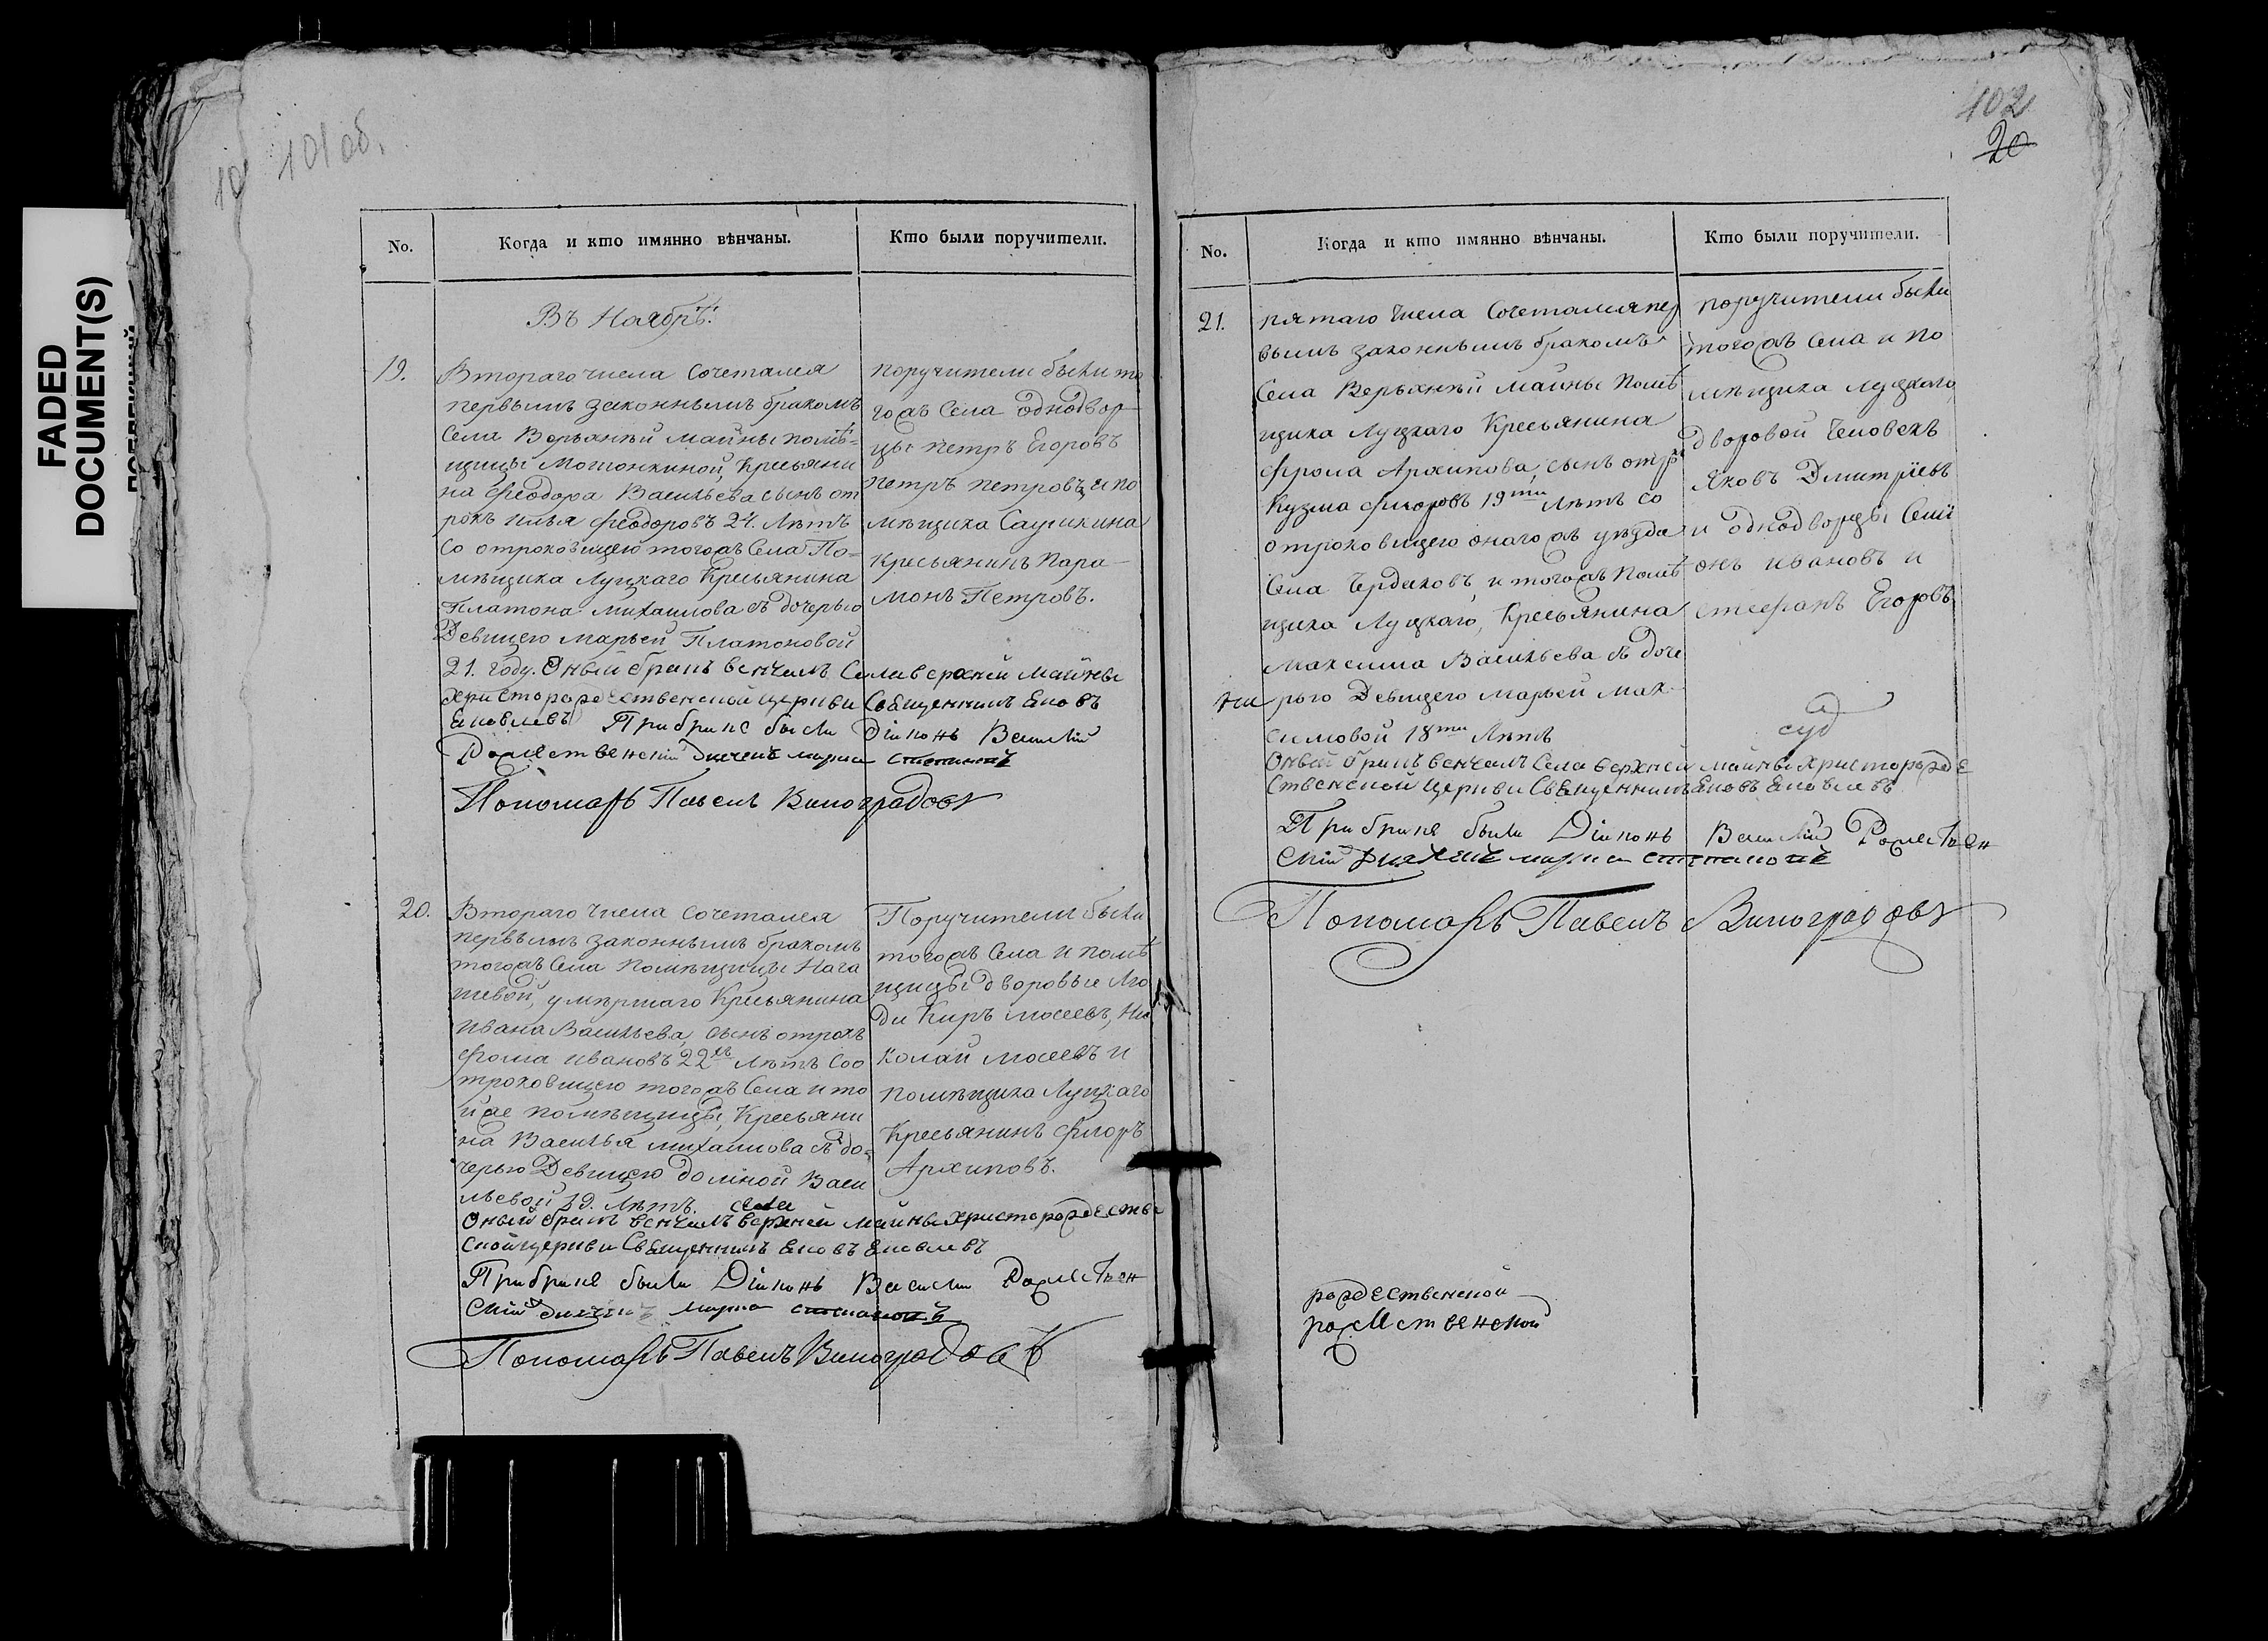 FADED
DOCUMENT(S)
101 об.
102
20
No.
Когда и кто имянно вѣнчаны.
Кто были поручители.
Въ Ноябрѣ.
19.
Втораго числа сочетался
первымъ законнымъ бракомъ
Села Верьхнѣй Майны помѣ=
щицы Мотонкиной, Кресьяни
на Феодора Васильева сынъ от
рокъ Илья Феодоровъ 24. Лѣтъ
со отроковицею тогожъ Села По=
мѣщика Луцкаго Кресьянина
Платона Михаилова съ дочерью
Девицею Марьей Платоновой
21. году. Оный бракъ венчалъ Села верхней майны
христорождественской церкви Священникъ Яковъ
Яковлевъ При бракѣ были Діаконъ Василій
Рождественскій дьячекъ марка степановъ
Пономарь Павелъ Виноградовъ
поручители были то
гожъ Села однодвор-
цы Петръ Егоровъ
Петръ Петровъ, и по
мѣщика Саушкина
Кресьянинъ Пара-
монъ Петровъ.
20.
Втораго числа сочетался
первымъ законнымъ бракомъ
тогожъ Села Помѣщицы Нага
ткевой, умершаго Кресьянина
Ивана Васильева, сынъ отрокъ
Фома Ивановъ 22хъ Лѣтъ Соо
троковицею тогожъ Села и то
йже помѣщицы, Кресьяни
на Василья Михаилова съ до=
черью Девицею Домной Васи
льевой 19. Лѣтъ. села
Оный бракъ венчалъ верхней майны христорождестве
ской церкви Священникъ Яковъ Яковлевъ
При бракѣ были Діаконъ Василіи Рождествен
скій дьячекъ марка степановъ
Пономарь Павелъ Виноградовъ
Поручители были
тогожъ Села и помѣ
щицы дворовые Лю
ди Киръ Мосеевъ, Ни
колай Мосеевъ и
помѣщика Луцкаго
Кресьянинъ Флоръ
Архиповъ.
No.
Когда и кто имянно вѣнчаны.
Кто были поручители.
21.
пятаго числа Сочетался пер
вымъ законнымъ бракомъ
Села Верьхнѣй Майны Помѣ
щика Луцкаго Кресьянина
Фрола Архипова, сынъ отр
Кузма Флоровъ 19ти Лѣтъ со
отроковицею онагожъ уѣзда
Села Чердаковъ, и тогожъ Помѣ
щика Луцкаго, Кресьянина
Максима Васильева съ доче
рью Девицею Марьей Мак-
симовой 18ти Лѣтъ
Оный бракъ венчалъ Села верхней майны христорожде
ственской церкви Священникъ Яковъ Яковлевъ
При бракѣ были Діаконъ Василій Рождествен
скій дьячекъ марка степановъ
Пономарь Павелъ Виноградовъ
поручители были
тогожъ Села и по
мѣщика Луцкаго,
дворовой Человекъ
Яковъ Дмитріевъ
и однодворцы Семі
онъ Ивановъ и
Стефанъ Егоровъ
суд
рождественской
рожественской